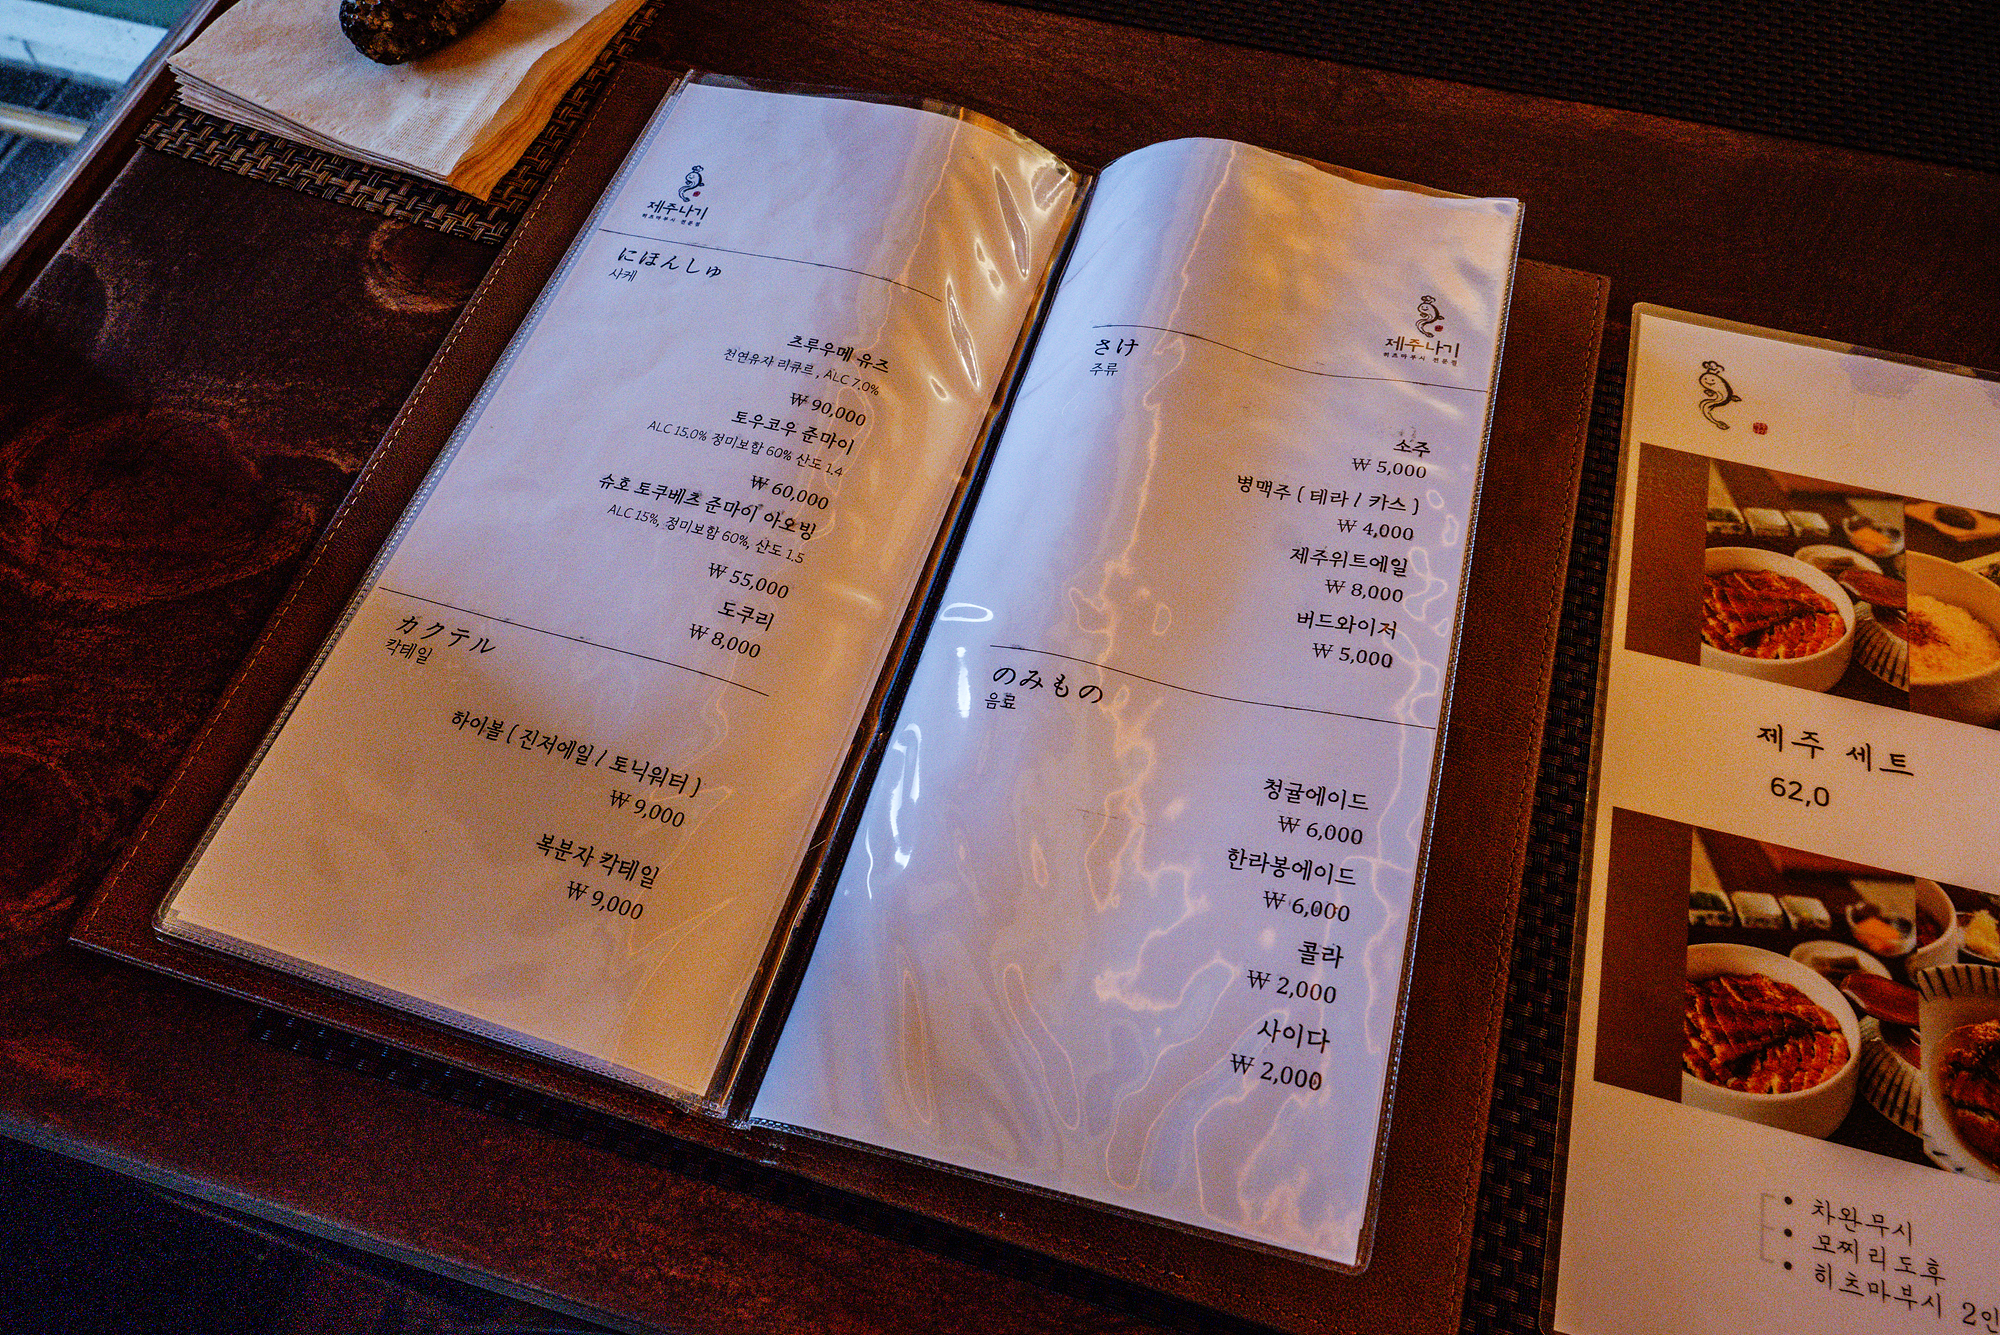 제주나기
히츠마부시 전문점
にほんしゅ
사케
츠루우메 유즈
천연유자 리큐르 , ALC 7.0%
₩ 90,000
토우코우 준마이
ALC 15.0% 정미보합 60% 산도 1.4
₩ 60,000
슈호 토쿠베츠 준마이 아오빙
ALC 15%, 정미보합 60%, 산도 1.5
₩ 55,000
도쿠리
₩ 8,000
カクテル
칵테일
하이볼 ( 진저에일 / 토닉워터 )
₩ 9,000
복분자 칵테일
₩ 9,000
제주나기
히츠마부시 전문점
さけ
주류
소주
₩ 5,000
병맥주 ( 테라 / 카스 )
₩ 4,000
제주위트에일
₩ 8,000
버드와이저
₩ 5,000
のみもの
음료
청귤에이드
₩ 6,000
한라봉에이드
₩ 6,000
콜라
₩ 2,000
사이다
₩ 2,000
제주 세트
62,0
• 차완무시
• 모찌리도후
• 히츠마부시 2인